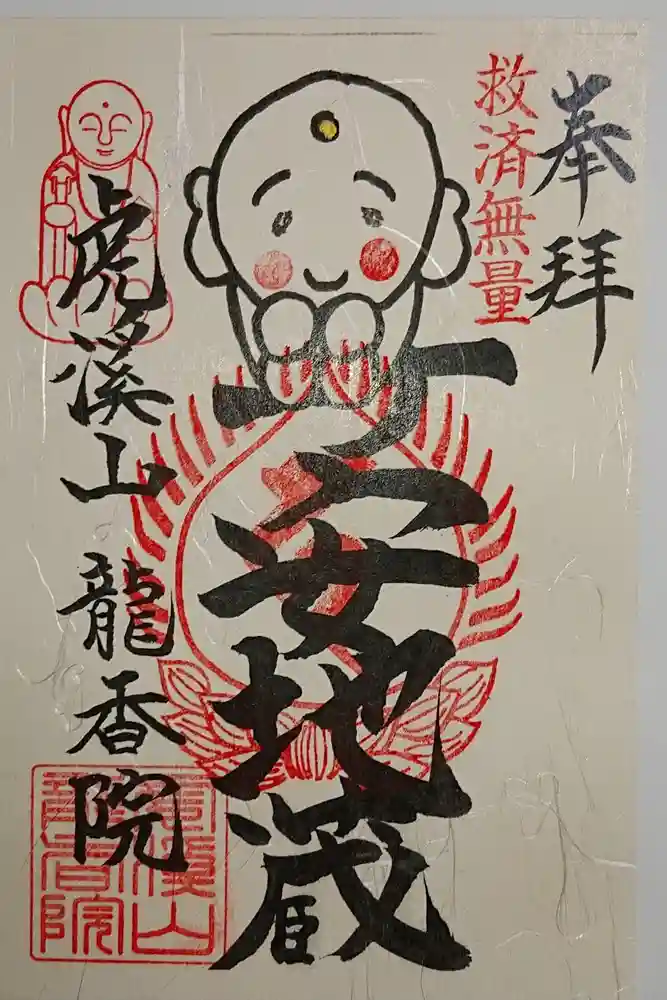 奉拝
救済無量
子安地蔵
虎溪山 龍香院
虎溪山
龍香院